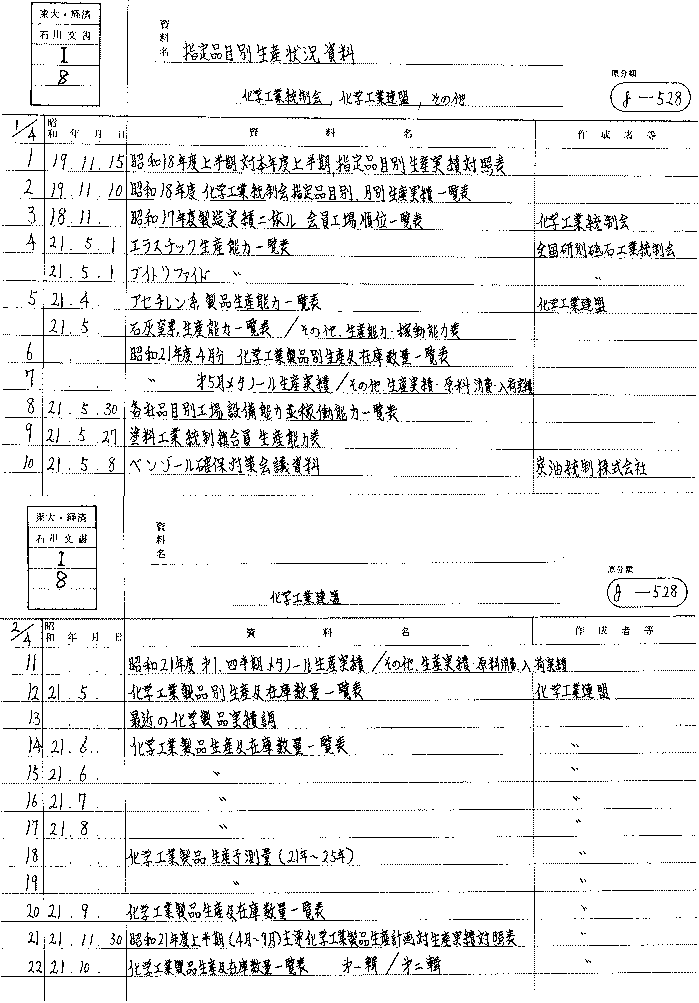 東大・経済
石川文書
I
8
資料名
指定品目別生産状況資料
原分類
化学工業統制会, 化学工業連盟, その他
J-528
1/4 昭和 年 月 日 資料名 作成者等
1 19.11.15 昭和18年度上半期対本年度上半期,指定品目別生産実績対照表
2 19.11.10 昭和18年度化学工業統制会指定品目別、月別生産実績一覧表
3 18.11. 昭和17年度製造実績ニ依ル 会員工場順位一覧表 化学工業統制会
4 21.5.1 エラスチック生産能力一覧表 全国研削砥石工業統制会
21.5.1 〃 〃
5 21.4. アセチレン系製品生産能力一覧表 化学工業連盟
21.5. 石灰窒素生産能力一覧表/その他、生産能力・稼動能力表
6 昭和21年度4月分 化学工業製品別生産及在庫数量一覧表
7 〃 5月メタノール生産実績/その他、生産実績・原料消費・入荷実績
8 21.5.30 各社品目別工場設備能力並稼働能力一覧表
9 21.5.27 塗料工業統制組合員生産能力表
10 21.5.8 ベンゾール確保対策会議資料 炭油統制株式会社
東大・経済
石川文書
I
8
資料名
原分類
化学工業連盟
J-528
2/4 昭和 年 月 日 資料名 作成者等
11 昭和21年度 才1.四半期メタノール生産実績/その他、生産実績・原料消費、入荷実績
12 21.5. 化学工業製品別生産及在庫数量一覧表 化学工業連盟
13 最近の化学製品実績調
14 21.6. 化学工業製品生産及在庫数量一覧表 〃
15 21.6. 〃 〃
16 21.7 〃 〃
17 21.8 〃 〃
18 化学工業製品生産予測量(21年~25年) 〃
19 〃 〃
20 21.9. 化学工業製品生産及在庫数量一覧表 〃
21 21.11.30 昭和21年度上半期(4月~9月)主要化学工業製品生産計画対生産実績対照表 〃
22 21.10. 化学工業製品生産及在庫数量一覧表 才一輯/才二輯 〃